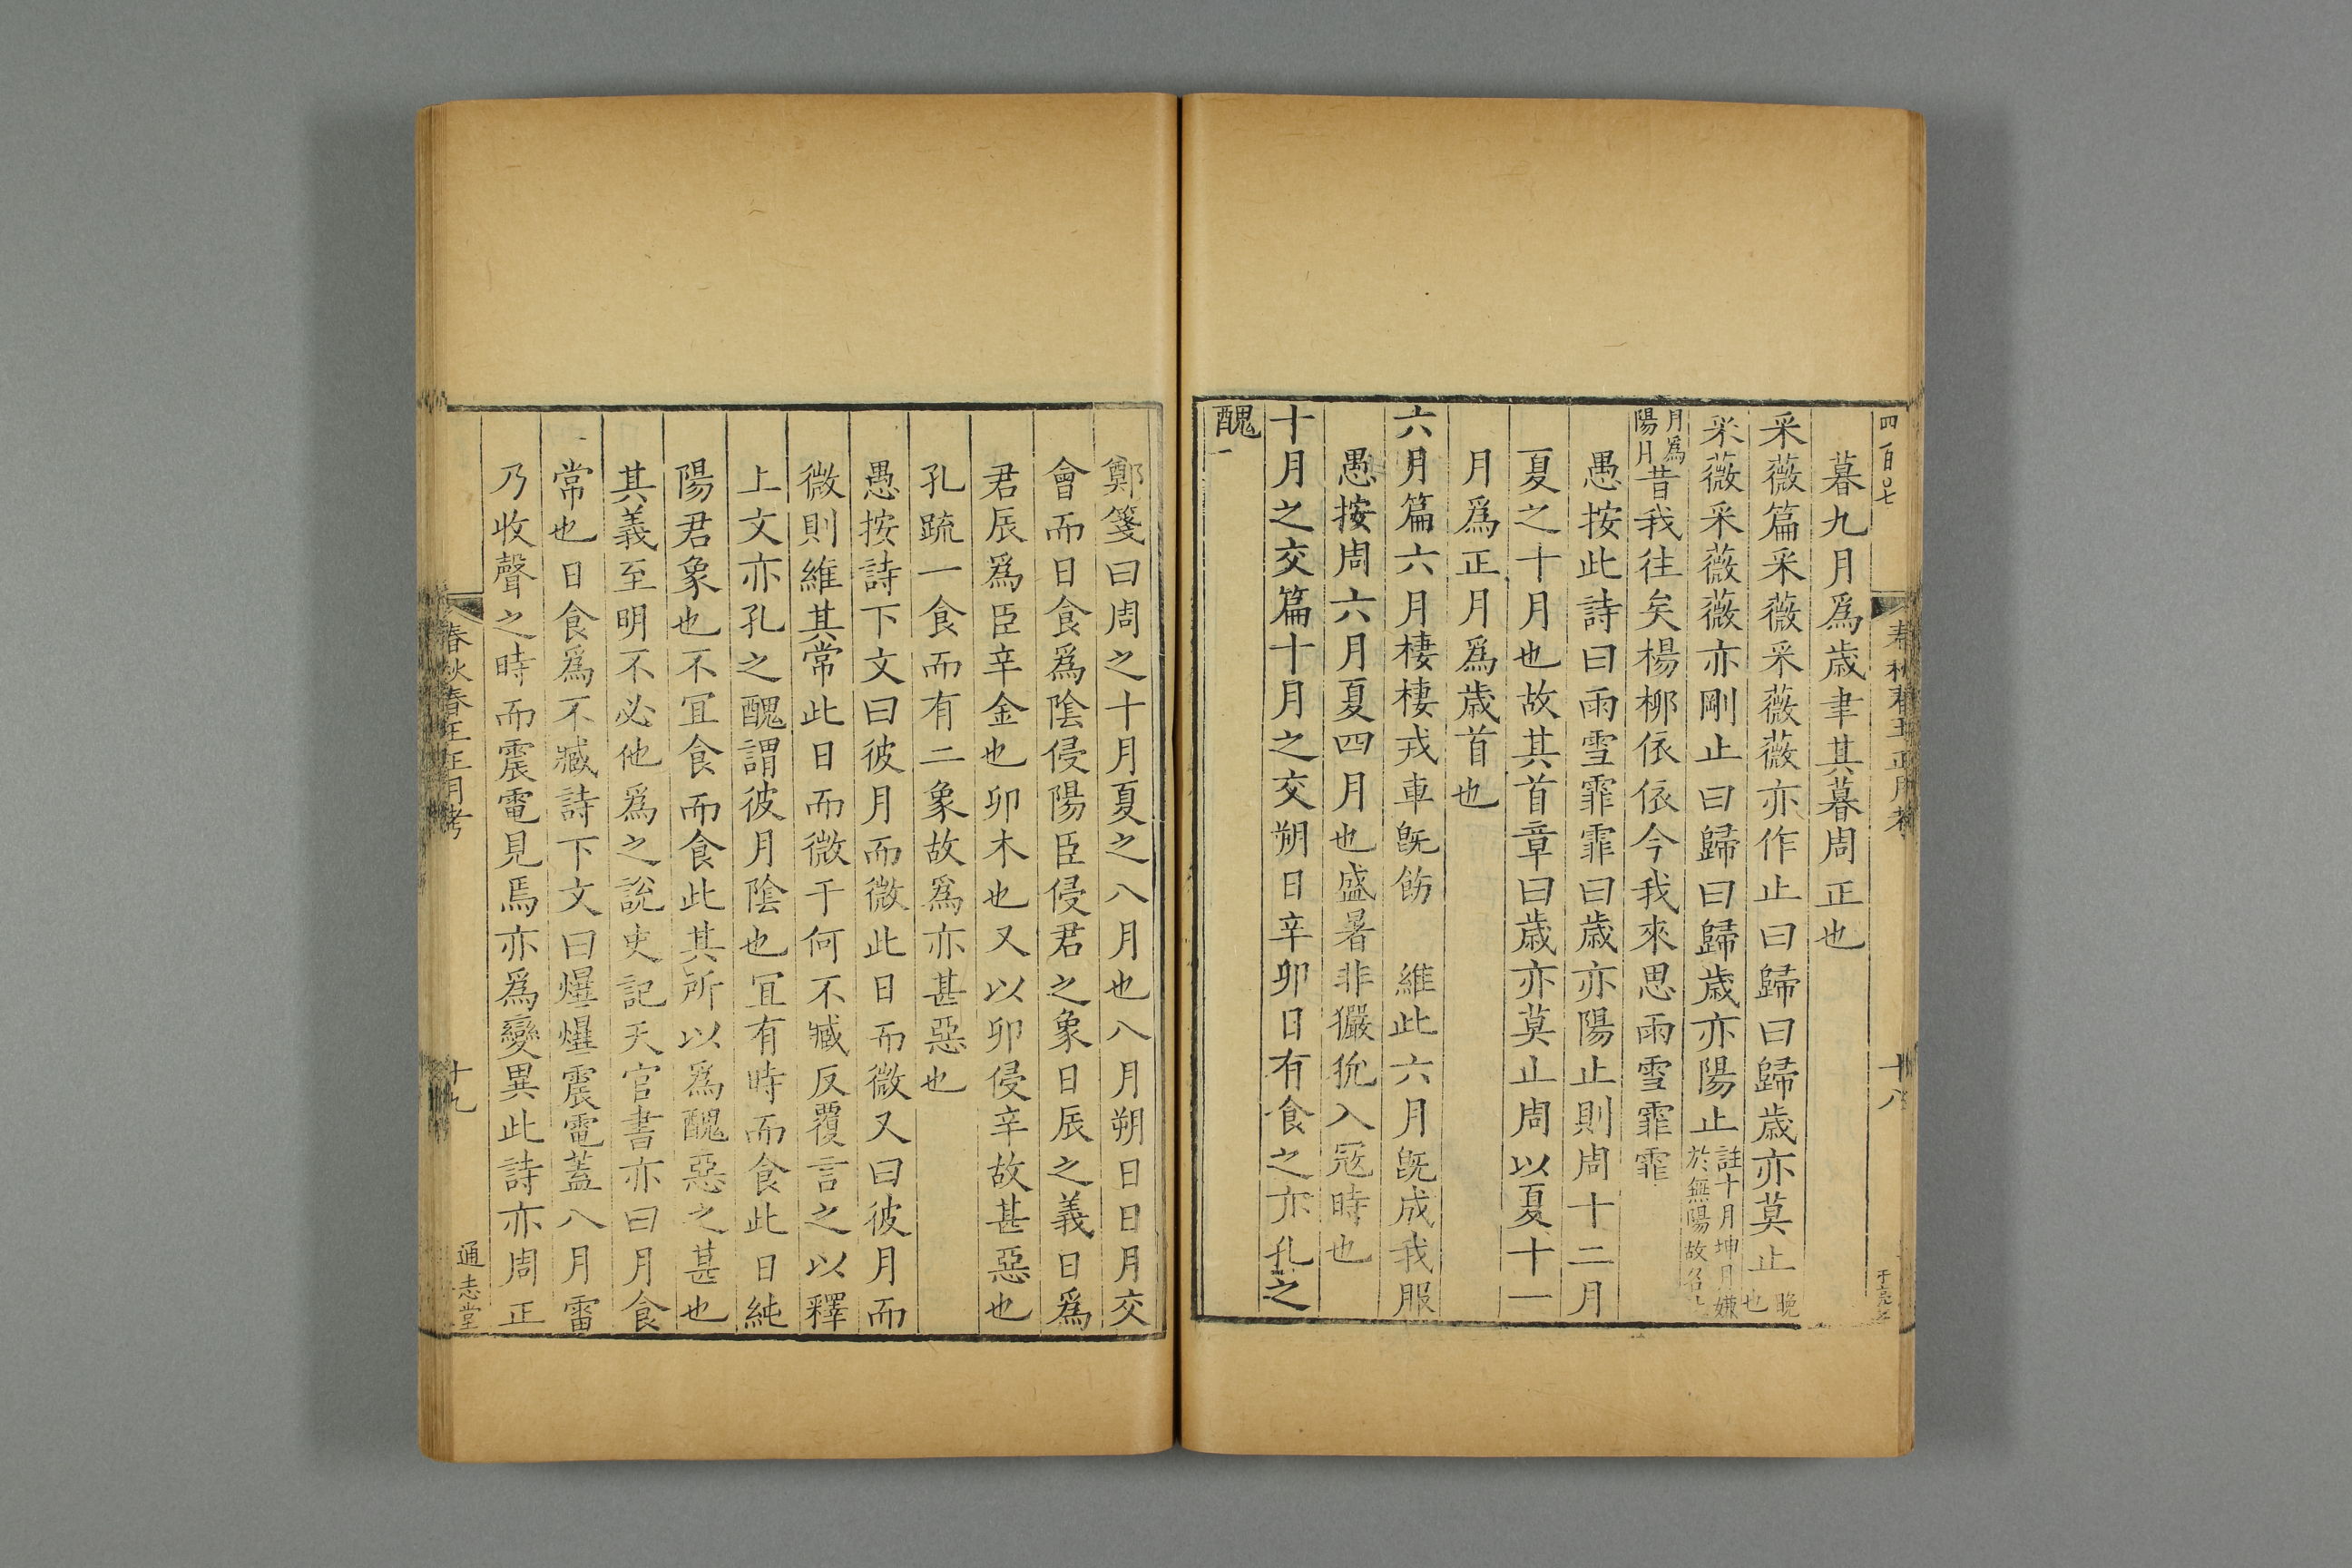 四百〇七
春秋春王正月考
十八
暮九月爲歳聿其暮周正也
采薇篇采薇采薇薇亦作止曰歸曰歸歳亦莫止晚也
采薇采薇薇亦剛止曰歸曰歸歳亦陽止註十月坤月嫌於無陽故名此
月爲陽月昔我往矣楊柳依依今我來思雨雪霏霏
愚按此詩曰雨雪霏霏曰歳亦陽止則周十二月
夏之十月也故其首章曰歳亦莫止周以夏十一
月爲正月爲歳首也
六月篇六月棲棲戎車旣飭　維此六月旣成我服
愚按周六月夏四月也盛暑非玁狁入冦時也
十月之交篇十月之交朔日辛卯日有食之亦孔之
醜
鄭箋曰周之十月夏之八月也八月朔日日月交
會而日食爲陰侵陽臣侵君之象日辰之義日爲
君辰爲臣辛金也卯木也又以卯侵辛故甚惡也
孔䟽一食而有二象故爲亦甚惡也
愚按詩下文曰彼月而微此日而微又曰彼月而
微則維其常此日而微于何不臧反覆言之以釋
上文亦孔之醜謂彼月陰也冝有時而食此日純
陽君象也不冝食而食此其所以爲醜惡之甚也
其義至明不必他爲之說史記天官書亦曰月食
常也日食爲不臧詩下文曰爗爗震電蓋八月雷
乃收聲之時而震電見焉亦爲變異此詩亦周正
春秋春王正月考
十九
通志堂